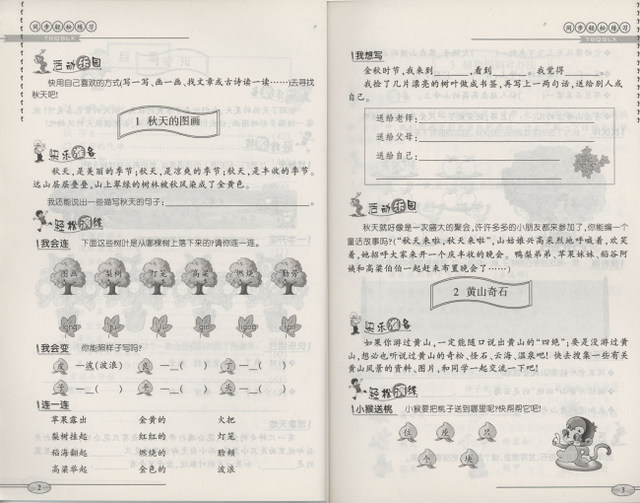 同步轻松练习
TBQSLX
活动乐园
快用自己喜欢的方式(写一写、画一画、找文章或古诗读一读……)去寻找
秋天吧!
1 秋天的图画
快乐准备
秋天,是美丽的季节;秋天,是凉爽的季节;秋天,是丰收的季节。
远山层层叠叠,山上翠绿的树林被秋风染成了金黄色。
我还能说出一些描写秋天的句子:
轻松训练
我会连 下面这些树叶是从哪棵树上落下来的?请你连一连。
图画 梨树 灯笼 高粱 燃烧 勤劳
我会变 你能照样子写吗?
皮—波(波浪) 良—( ) 丁—( )
—( ) —( ) —( )
连一连
苹果露出 金黄的 火把
梨树挂起 红红的 灯笼
稻海翻起 燃烧的 脸颊
高粱举起 金色的 波浪
2
同步轻松练习
TBQSLX
我想写
金秋时节,我来到______,看到______。我觉得______。
我捡了几片漂亮的树叶做成书签,再写上一两句话,送给别人或
自己。
送给老师:
送给父母:
送给自己:
活动乐园
秋天就好像是一次盛大的聚会,许许多多的小朋友都来参加了,你能编一个
童话故事吗?("秋天来啦,秋天来啦",山姑娘兴高采烈地呼喊着,欢笑
着,她招呼大家来开一个庆丰收的晚会。鸭梨弟弟、苹果妹妹、稻谷阿
姨和高粱伯伯一起赶来布置晚会了……)
2 黄山奇石
快乐准备
如果你游过黄山,一定能随口说出黄山的"四绝";要是没游过黄
山,想必也听说过黄山的奇松、怪石、云海、温泉吧!快去搜集一些有关
黄山风景的资料、图片,和同学一起交流一下吧!
轻松训练
小猴送桃 小猴要把桃子送到哪里呢?快帮帮它吧!
位 座 只
个 块
3